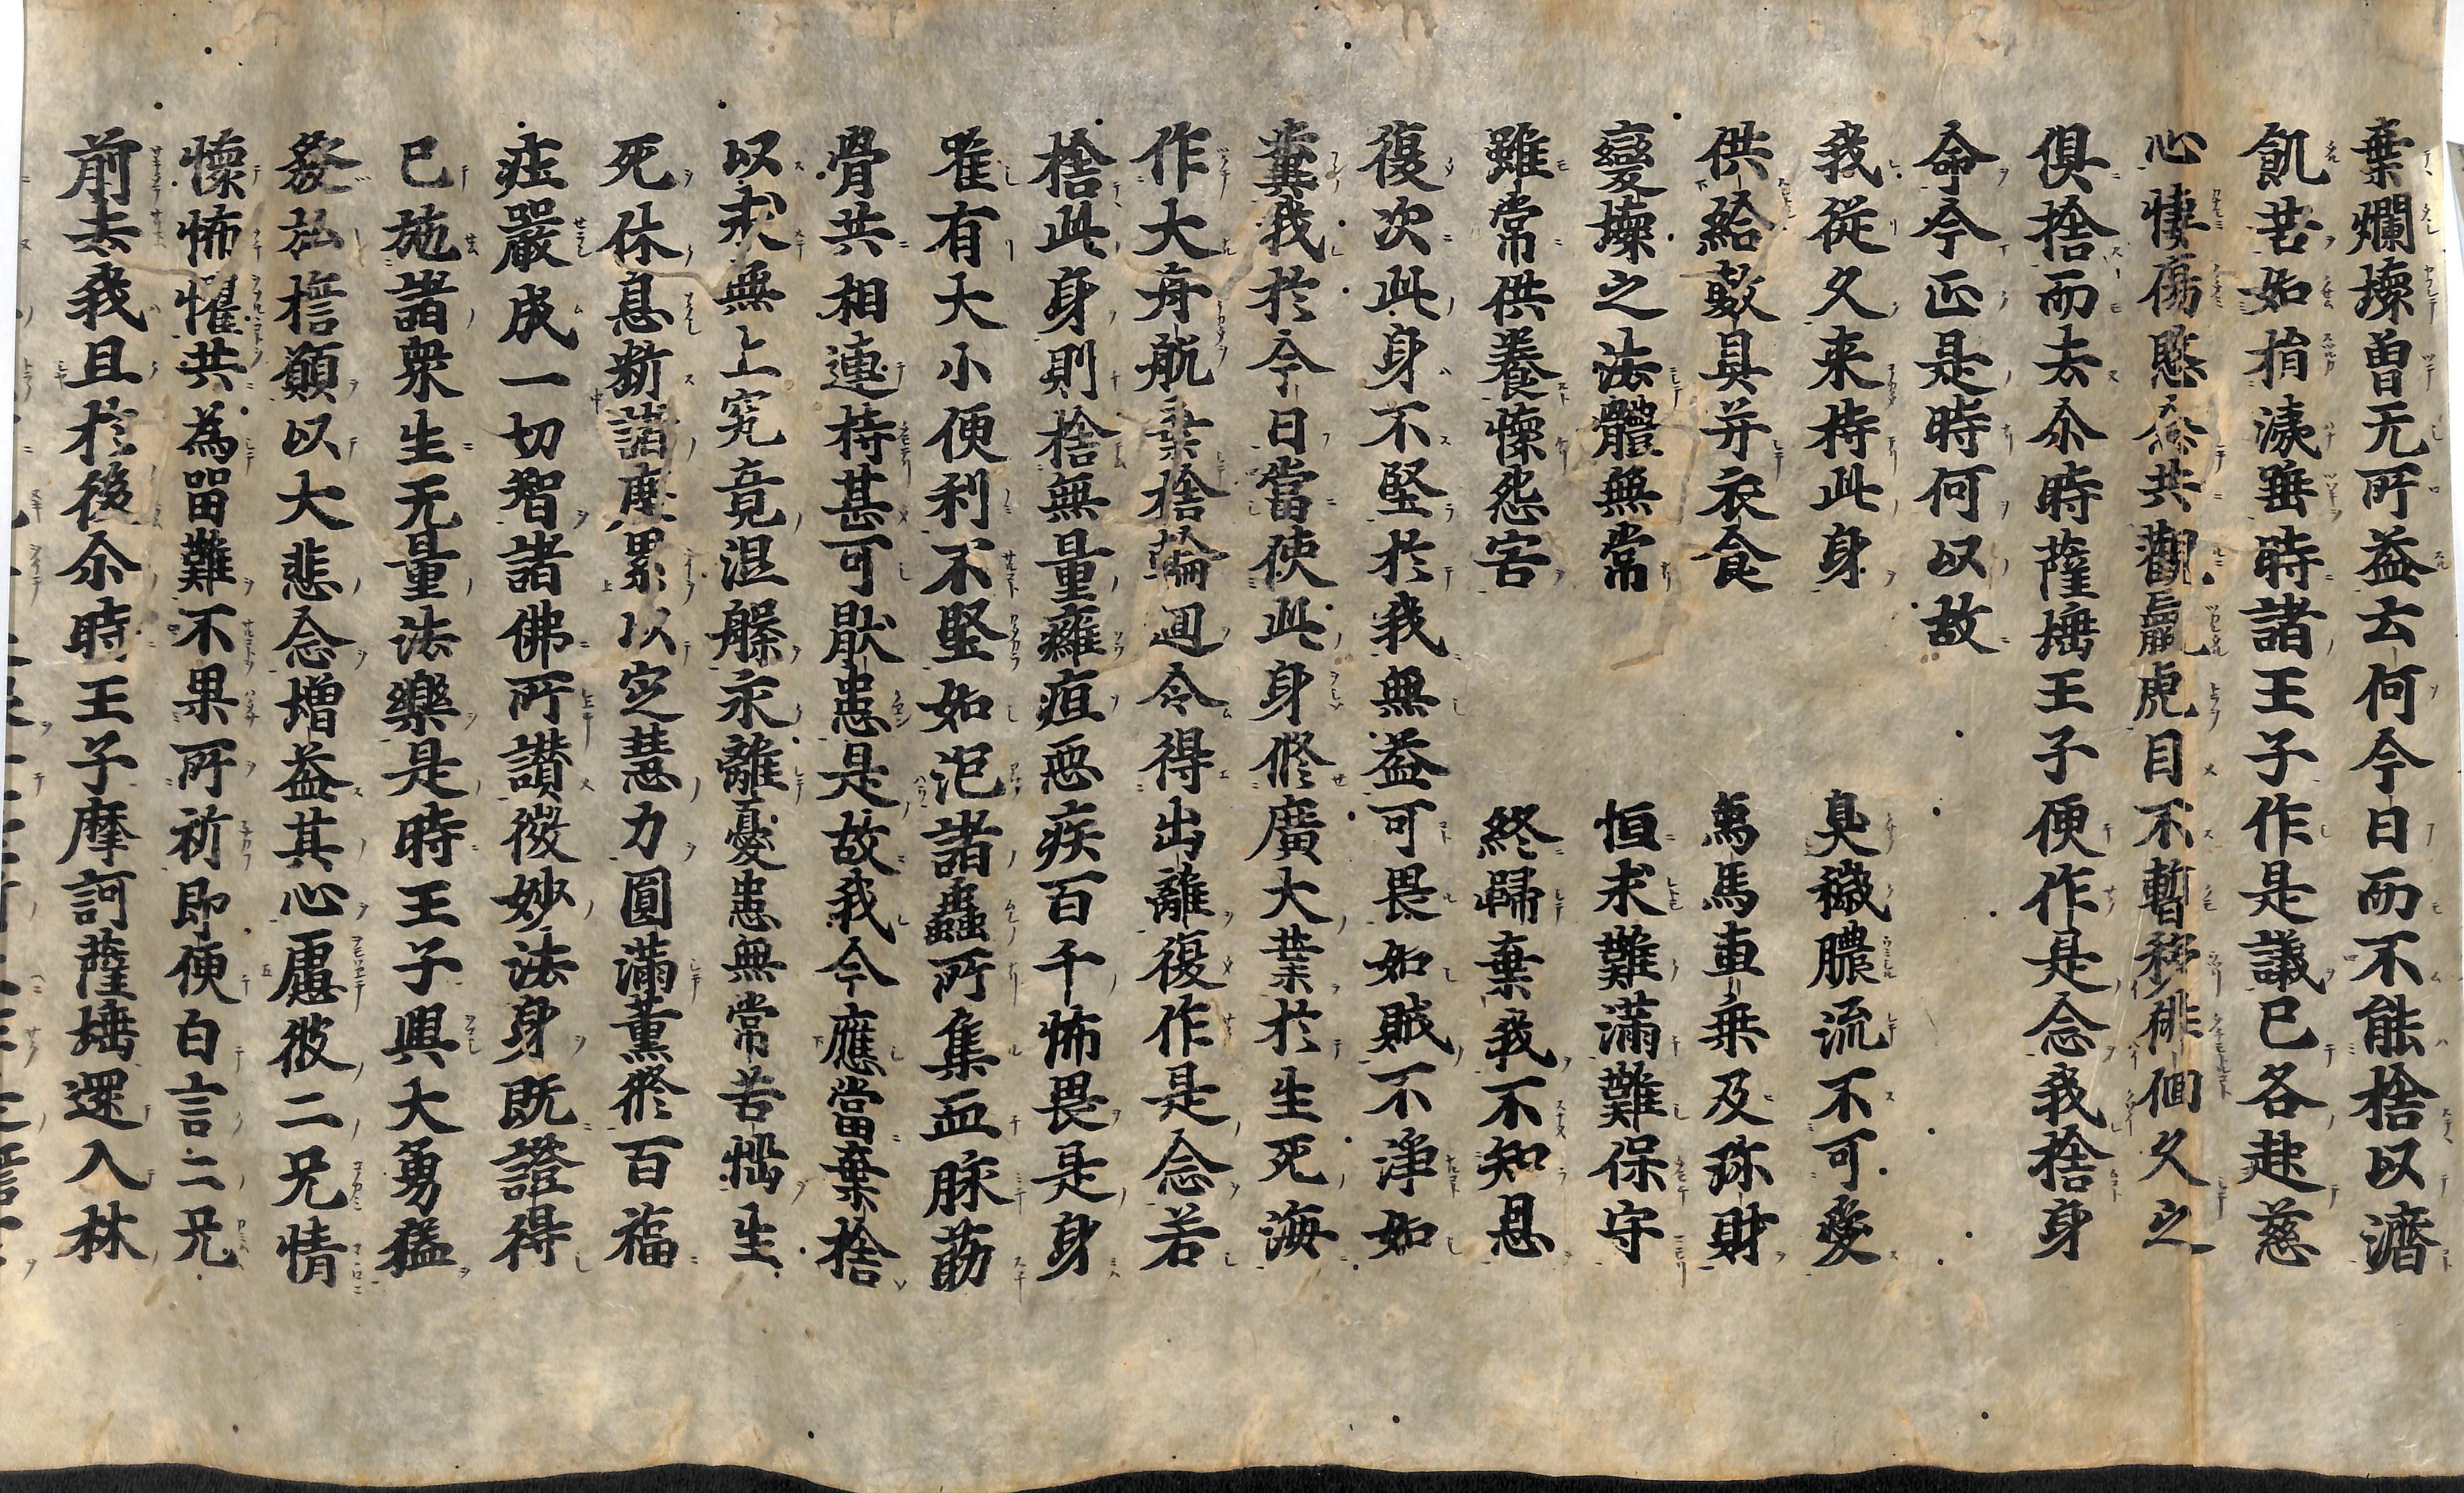 棄爛壞曾无所益云何今日而不能捨以濟
飢苦如捐洟唾時諸王子作是議已各起慈
心悽傷愍念共觀羸虎目不暫移徘徊久之
俱捨而去尒時薩埵王子便作是念我捨身
命今正是時何以故
我從久来持此身　臭穢膿流不可愛
供給敷具并衣食　象馬車乗及珎財
變壞之法體無常　恒求難滿難保守
雖常供養懷怨害　終歸棄我不知恩
復次此身不堅於我無益可畏如賊不淨如
糞我於今日當使此身修廣大業於生死海
作大舟航棄捨輪迴令得出離復作是念若
捨此身則捨無量癰疽惡疾百千怖畏是身
唯有大小便利不堅如泡諸蟲所集血脉筋
骨共相連持甚可猒患是故我今應當棄捨
以求無上究竟涅槃永離憂患無常苦惱生
死休息斷諸塵累以定慧力圓滿薰修百福
莊嚴成一切智諸佛所讃微妙法身既證得
已施諸衆生无量法樂是時王子興大勇猛
發弘誓願以大悲念增益其心慮彼二兄情
懷怖懼共為留難不果所祈即便白言二兄
前去我且於後尒時王子摩訶薩埵還入林